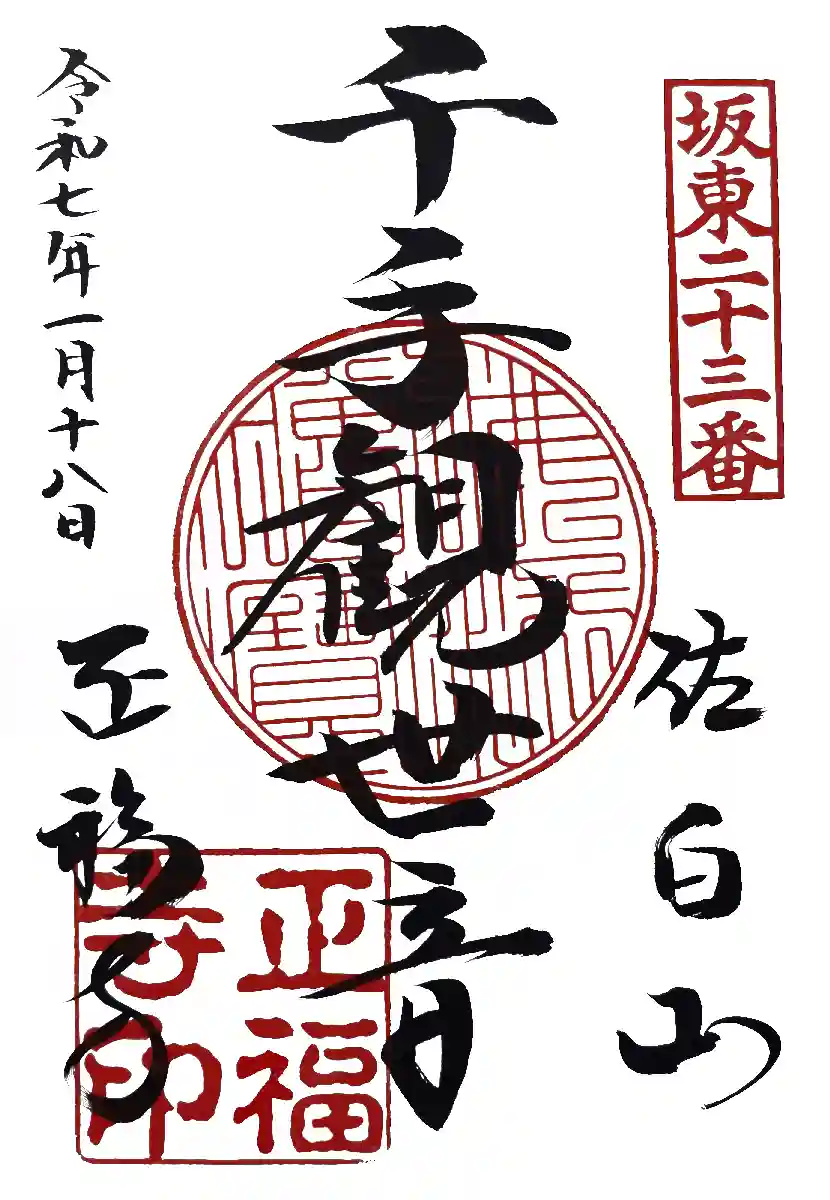 坂東二十三番
佐白山
千手観世音
令和七年一月十八日
正福寺
正福
寺印